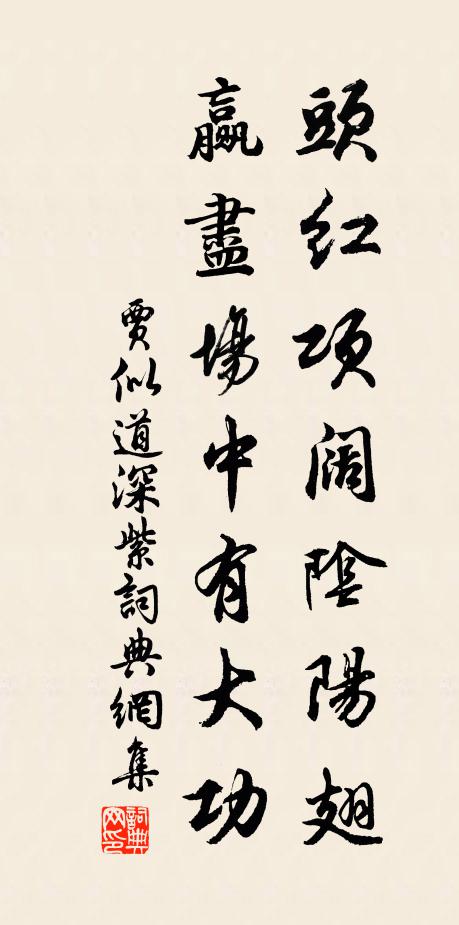 頭紅項闊陰陽翅
贏盡場中有大功
賈似道深紫詞典網集
詞典網印